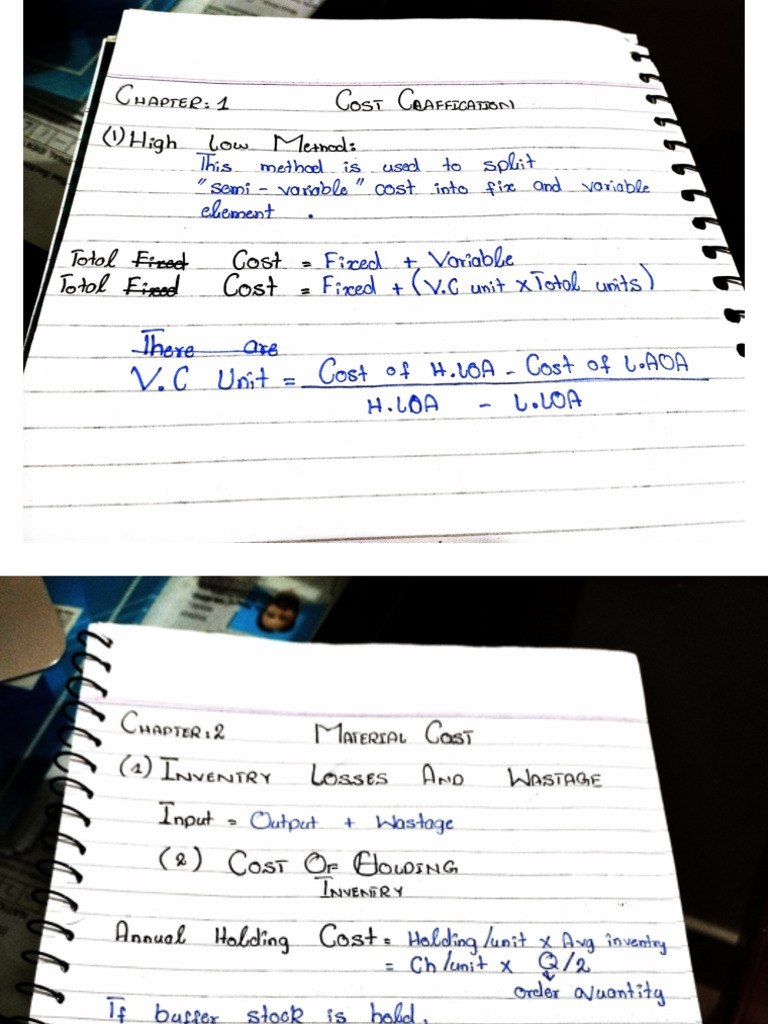 CHAPTER: 1 COST CLAFFICATION
(1) High Low Method:
This method is used to split
"semi-variable" cost into fix and variable
element.
Total Fixed Cost = Fixed + Variable
Total Fixed Cost = Fixed + (V.C unit x Total units)
There are
V.C Unit = Cost of H.LOA - Cost of L.AOA
H.LOA - L.LOA
CHAPTER: 2 MATERIAL COST
(1) INVENTRY LOSSES AND WASTAGE
Input = Output + Wastage
(2) COST OF HOLDING
INVENTRY
ANNUAL Holding Cost = Holding/unit x Avg inventry
= Ch/unit x Q/2
order quantity
If buffer stock is hold.